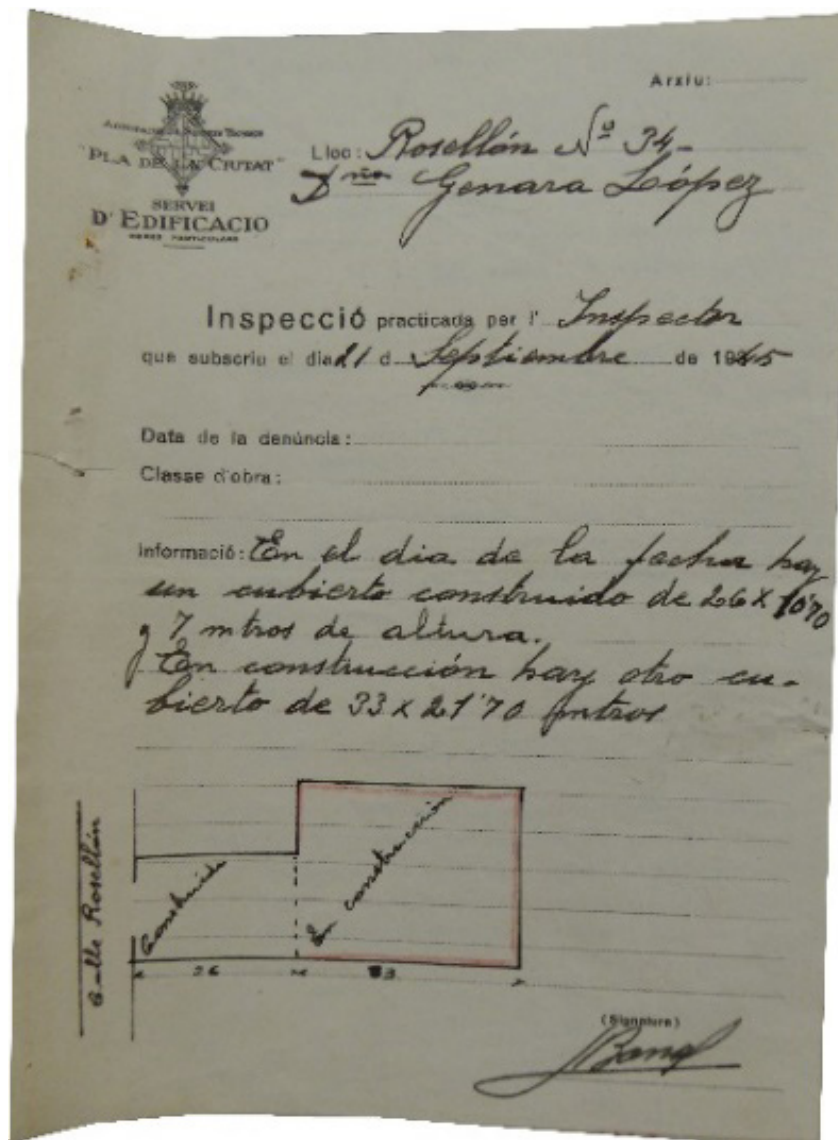 Arxiu:
AGRUPACIÓ DE SERVEIS TÈCNICS
"PLA DE LA CIUTAT"
SERVEI
D'EDIFICACIO
OBRES PARTICULARS
Lloc: Rosellón Nº 34-
Dña Genara López
Inspecció practicada per l' Inspector
que subscriu el dia 21 d Septiembre de 1945
Data de la denúncia:
Classe d'obra:
Informació: En el dia de la fecha hay
un cubierto construido de 26 x 10'70
y 7 mtros de altura.
En construcción hay otro cu-
bierto de 33 x 21'70 mtros
Calle Rosellón
Construido
En construcción
26
33
(Signatura)